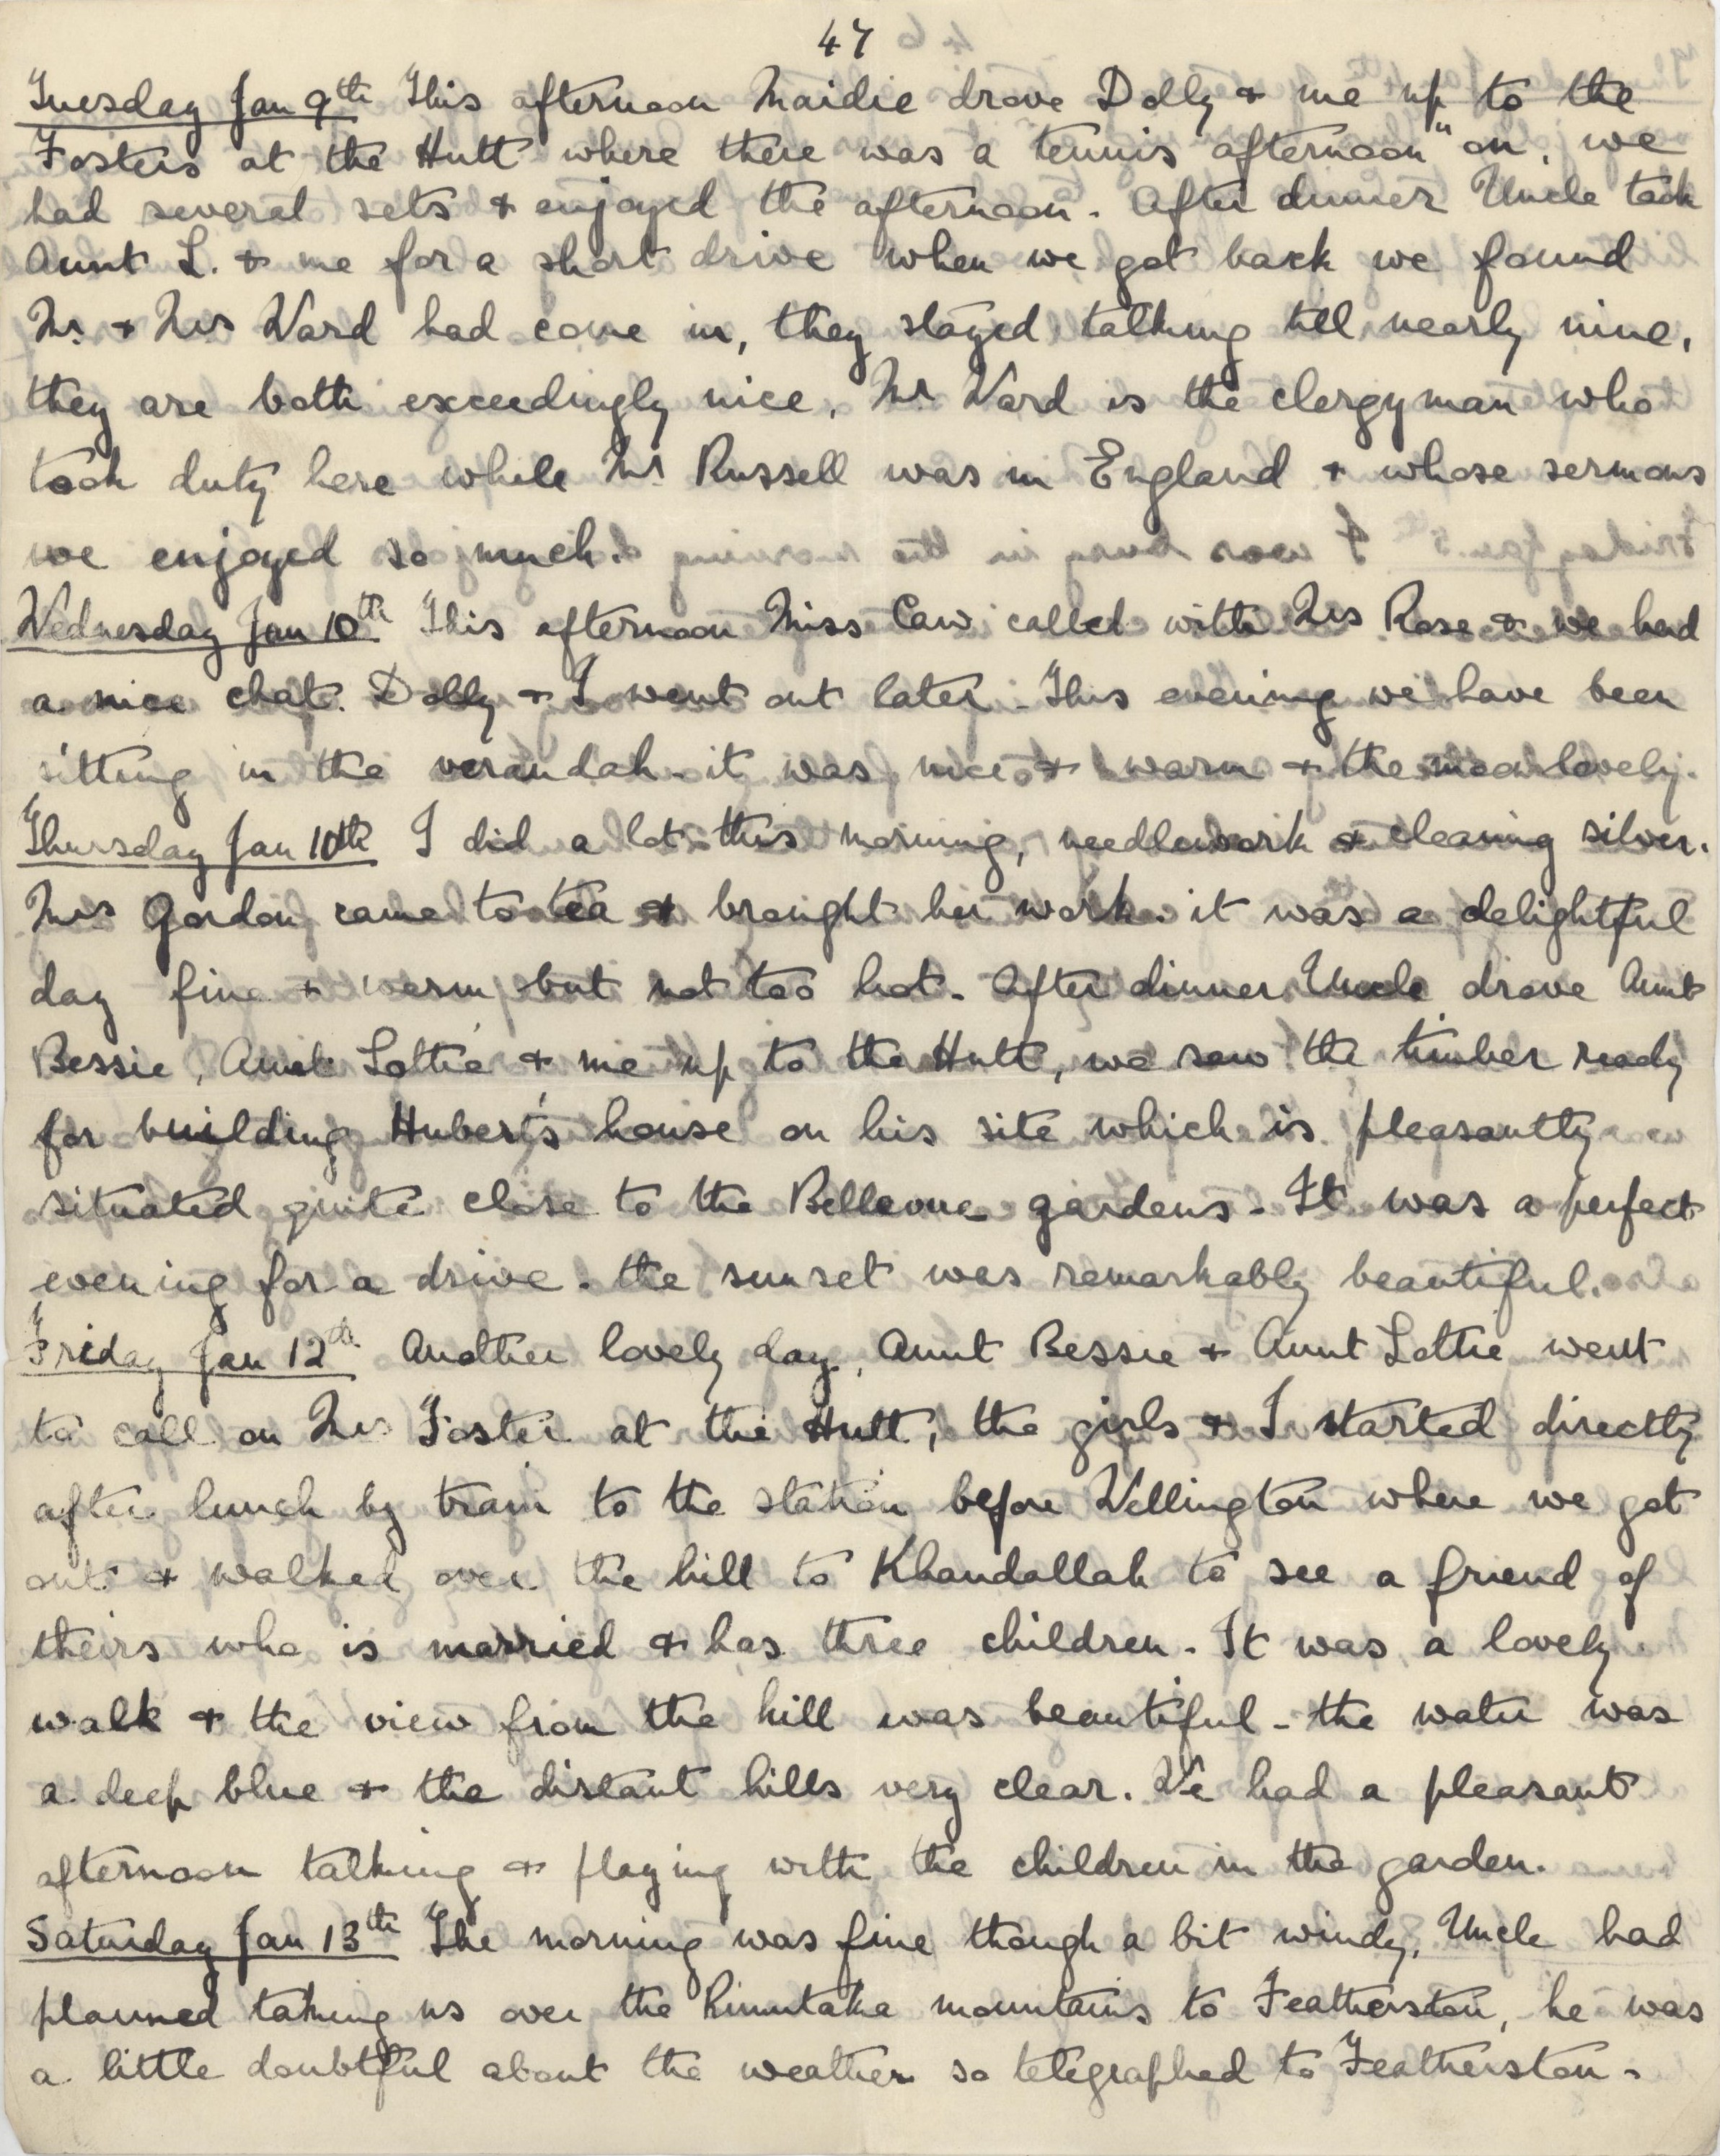 47
Tuesday Jan 9th This afternoon Maidie drove Dolly & me up to the
Fosters at the Hutt where there was a tennis "afternoon" on, we
had several sets & enjoyed the afternoon. After dinner Uncle took
Aunt L. & me for a short drive when we got back we found
Mr. & Mrs Ward had come in, they stayed talking till nearly nine,
they are both exceedingly nice. Mr Ward is the clergyman who
took duty here while Mr Russell was in England & whose sermons
we enjoyed so much.
Wednesday Jan 10th. This afternoon Miss Caw called with Mrs Rose & we had
a nice chat. Dolly & I went out later - This evening we have been
sitting in the verandah - it was nice & warm & the moon lovely.
Thursday Jan 10th I did a lot this morning, needlework & cleaning silver.
Mrs Gordon came to tea & brought her work. it was a delightful
day fine & warm but not too hot. After dinner Uncle drove Aunt
Bessie, Aunt Lottie & me up to the Hutt, we saw the timber ready
for building Hubert's house on his site which is pleasantly
situated quite close to the Bellevue gardens - It was a perfect
evening for a drive. the sunset was remarkably beautiful.
Friday Jan 12th Another lovely day, Aunt Bessie & Aunt Lottie went
to call on Mrs Foster at the Hutt, the girls & I started directly
after lunch by train to the station before Wellington where we got
out & walked over the hill to Khandallah to see a friend of
theirs who is married & has three children - It was a lovely
walk & the view from the hill was beautiful - the water was
a deep blue & the distant hills very clear. We had a pleasant
afternoon talking & playing with the children in the garden.
Saturday Jan 13th The morning was fine though a bit windy, Uncle had
planned taking us over the Rimutaka mountains to Featherston, he was
a little doubtful about the weather so telegraphed to Featherston.